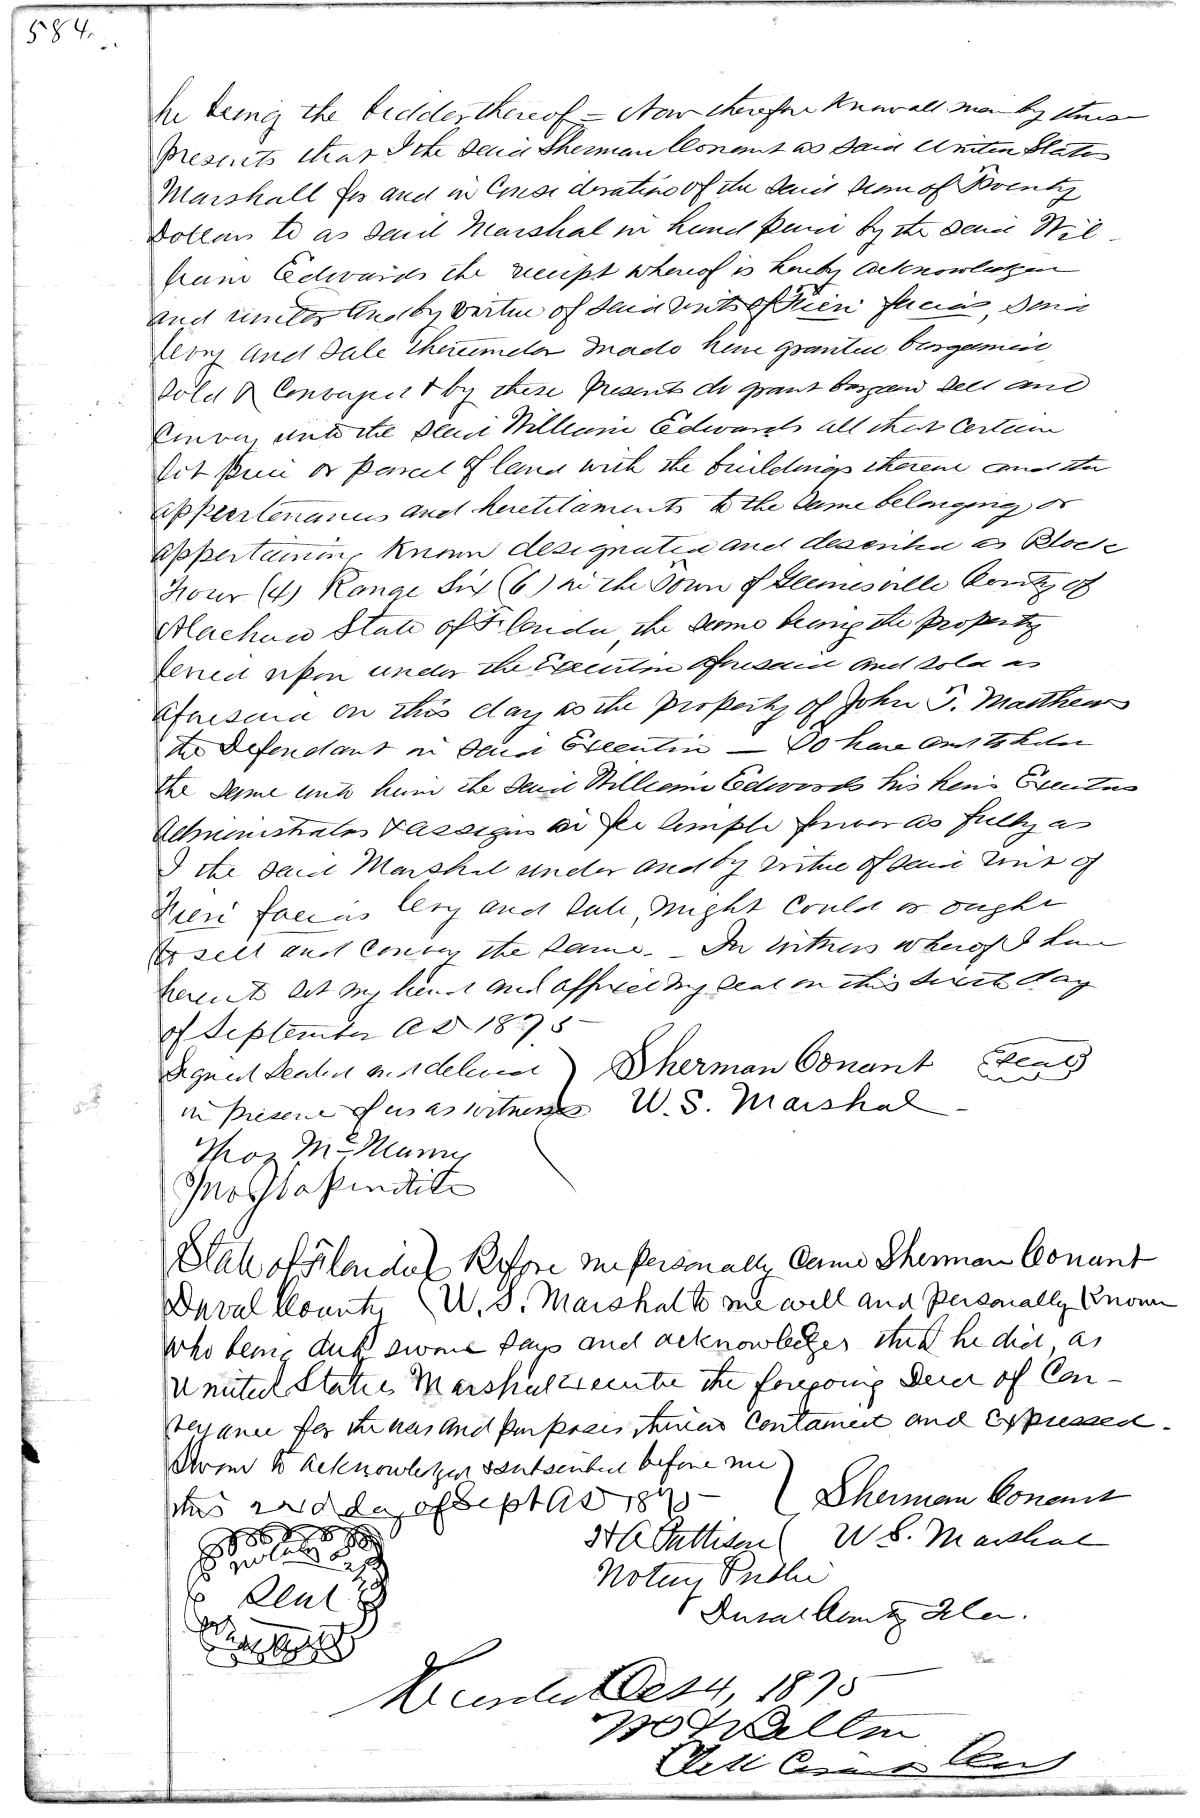 584.
he being the bidder thereof = Now therefore Know all men by these
presents that I the said Sherman Conant as said United States
Marshall for and in Consideration of the said sum of Twenty
Dollars to as said Marshal in hand paid by the said Wil-
liam Edwards the receipt whereof is hereby acknowledged
and under and by virtue of said writ of Fieri facias, said
levy and sale thereunder made have granted bargained
sold & Conveyed & by these presents do grant bargain sell and
Convey unto the said William Edwards all that certain
lot piece or parcel of land with the buildings thereon and the
appertenances and hereditaments to the same belonging or
appertaining Known designated and described as Block
Four (4) Range Six (6) in the Town of Gainesville County of
Alachua State of Florida, the same being the property
levied upon under the Execution aforesaid and sold as
aforesaid on this day as the property of John T. Matthews
the Defendant in said Execution — To have and to hold
the same unto him the said William Edwards his heirs Executors
Administrators & assigns in fee simple forever as fully as
I the said Marshal under and by virtue of said writ of
Fieri facias levy and sale, might could or ought
to sell and convey the same. - In witness whereof I have
hereunto set my hand and affixed my seal on this sixth day
of September AD 1875
Signed Sealed and delivered ) Sherman Conant (Seal)
in presence of us as witnesses W. S. Marshal -
Thos McMurray
Jno
State of Florida } Before me personally came Sherman Conant
Duval County ( U. S. Marshal to me well and personally Known
who being duly sworn says and acknowledges that he did, as
United States Marshal execute the foregoing Deed of Con-
veyance for the uses and purposes therein contained and expressed.
Sworn to acknowledged & subscribed before me
this 22nd day of Sept AD 1875 ( Sherman Conant
H A Pattison ( U S. Marshal
Notary Public
Duval County Fla.
Notary
Seal
Recorded Oct 4, 1875
Clerk Circuit Court